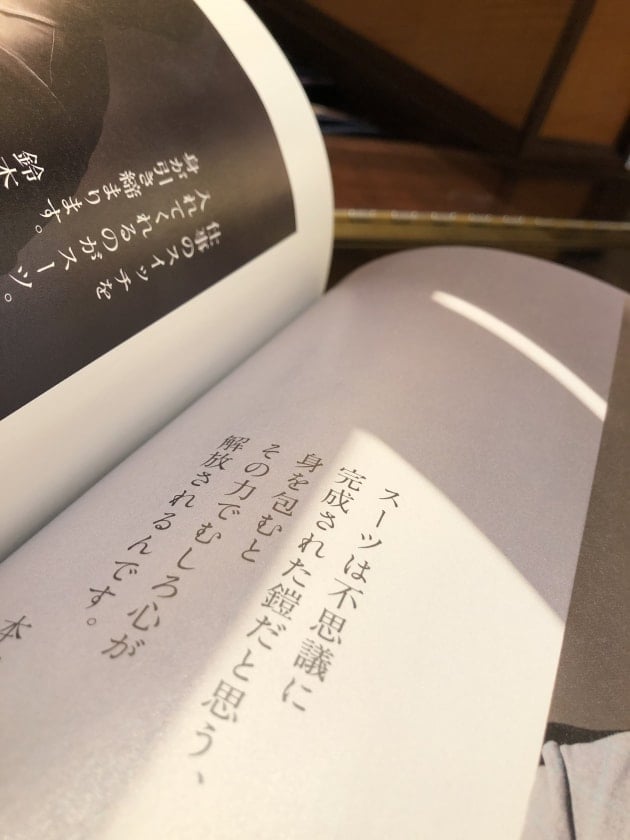 スーツは不思議に
完成された鎧だと思う、
身を包むと
その力でむしろ心が
解放されるんです。
本
仕事のスイッチを
入れてくれるのがスーツ。
身が引き締まります。
鈴木